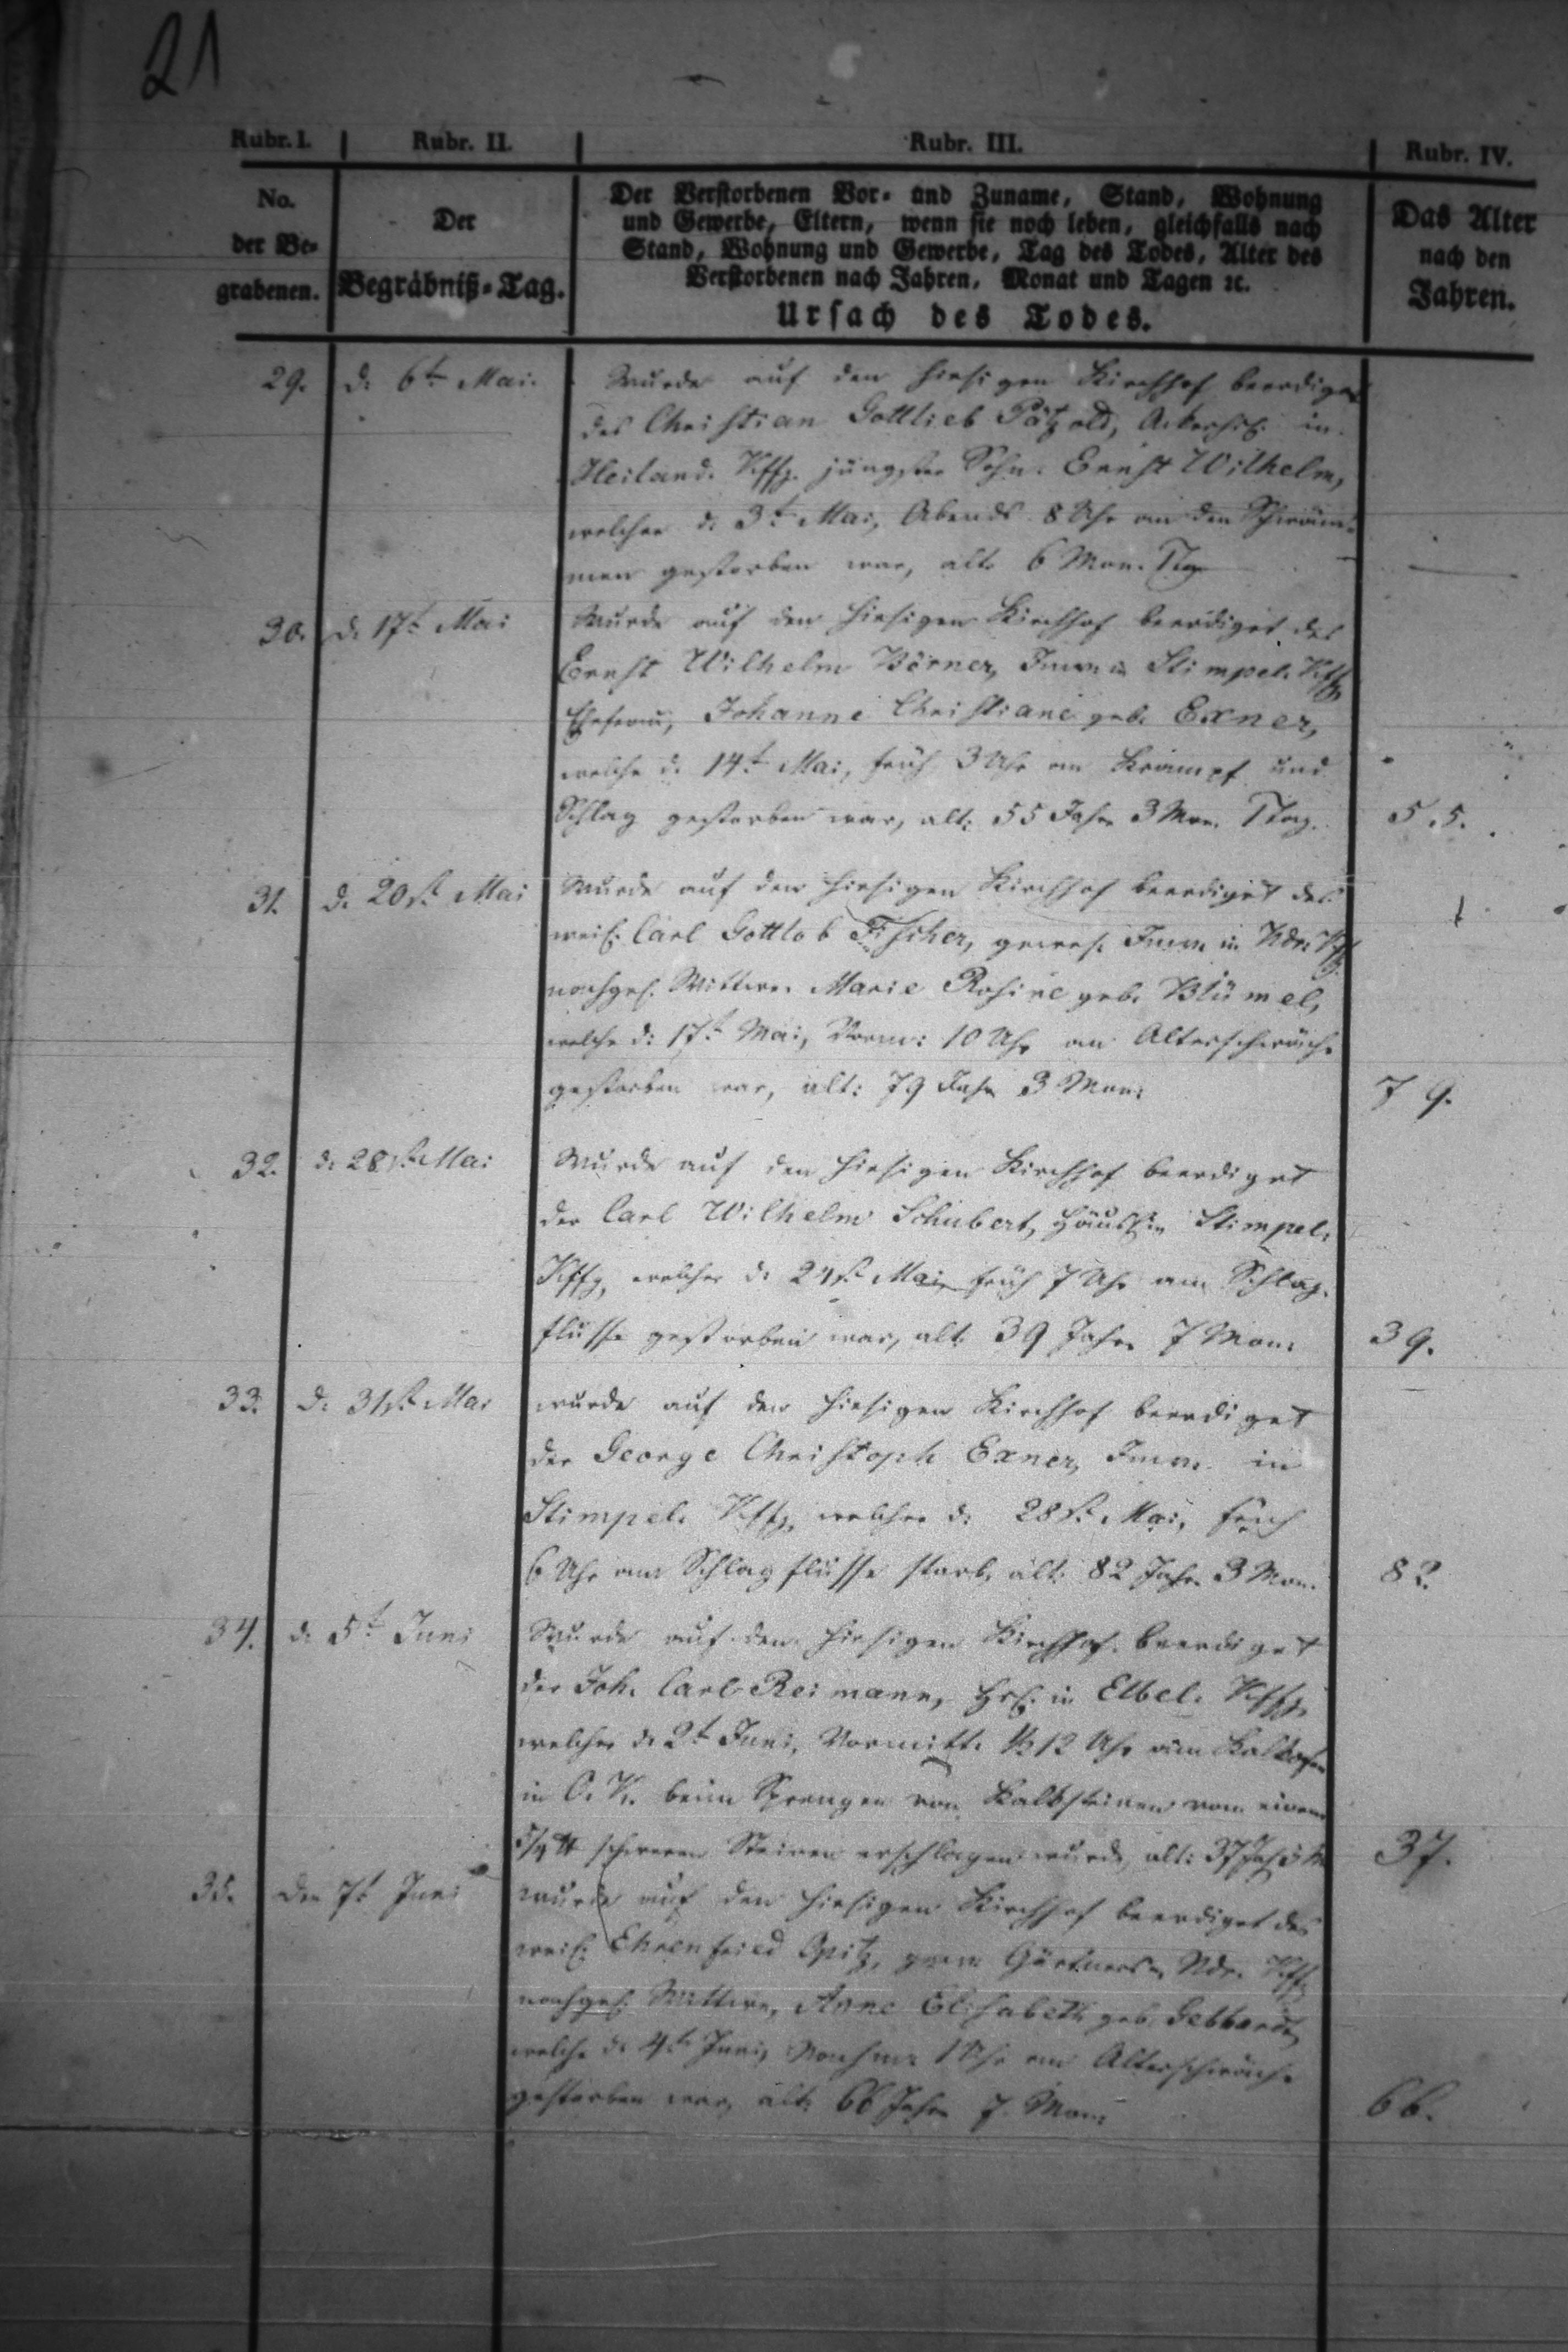 21
Rubr. I. Rubr. II. Rubr. III. Rubr. IV.
No. der Be=grabenen.
Der Begräbniß=Tag.
Der Verstorbenen Vor= und Zuname, Stand, Wohnung
und Gewerbe, Eltern, wenn sie noch leben, gleichfalls nach
Stand, Wohnung und Gewerbe, Tag des Todes, Alter des
Verstorbenen nach Jahren, Monat und Tagen ꝛc.
Ursach des Todes.
Das Alter
nach den
Jahren.
29. d. 6t Mai. Wurde auf den hiesigen Kirchhof beerdiget
des Christian Gottlieb Pätzold, in
Heiland. Kffg. jüngster Sohn Ernst Wilhelm,
welcher d. 3t Mai, Abends 8 Uhr an den Schwäm=
men gestorben war, alt 6 Mon.
30. d. 17t Mai Wurde auf den hiesigen Kirchhof beerdiget des
Ernst Wilhelm Börner, Inw. in Stimpel. Kffg
Ehefrau, Johanne Christiane geb. Exner,
welche d. 14t Mai, früh 3 Uhr an Krampf und
Schlag gestorben war, alt: 55 Jahr 3 Mon. Tag. 55.
31. d. 20st Mai Wurde auf den hiesigen Kirchhof beerdiget des
weil. Carl Gottlob Fischer, gewes. Inw. in Ndr. Kffg
nachgel. Wittwe Marie Rosine geb. Blümel,
welche d: 17t Mai, Vorm: 10 Uhr an Altersschwäche
gestorben war, alt: 79 Jahr 3 Mon: 79.
32. d: 28st Mai Wurde auf den hiesigen Kirchhof beerdiget
der Carl Wilhelm Schubert, Häusl. in Stimpel.
Kffg, welcher d. 24st Mai, früh 7 Uhr am Schlag=
flusse gestorben war, alt: 39 Jahr 7 Mon. 39.
33. d. 31st Mai wurde auf den hiesigen Kirchhof beerdiget
der George Christoph Exner, Inw. in
Stimpel. Kffg, welcher d: 28st Mai, früh
6 Uhr am Schlagflusse starb, alt: 82 Jahr 3 Mon. 82.
34. d. 5t Juni Wurde auf den hiesigen Kirchhof beerdiget
der Joh. Carl Reimann, in Elbel. Kffg,
welcher d. 2t Juni, Vormitt. ½12 Uhr am Kalkofen
in O. K. beim Sprengen von Kalksteinen von einem
schweren Steinen erschlagen wurde, alt: 37 Jahr 37.
35. den 7t Juni wurde auf den hiesigen Kirchhof beerdiget des
weil. Ehrenfried Opitz, gew. Gärtners in Ndr. Kffg
nachgel. Wittwe, Anne Elisabeth geb. Gebhardt,
welche d. 4t Juni, Nachm. 1 Uhr an Altersschwäche
gestorben war, alt: 66 Jahr 7 Mon: 66.